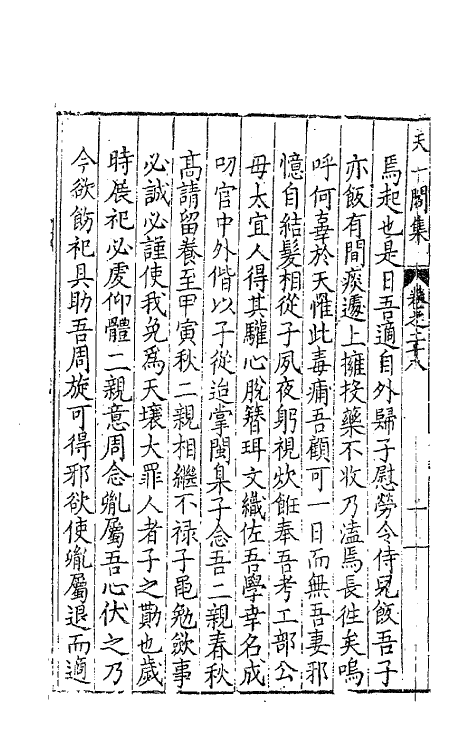 天一閣集 卷之二十八
焉起也是日吾適自外歸子慰勞令侍兒飯吾子
亦飯有間痰遽上擁投藥不收乃溘焉長徃矣嗚
呼何辜於天罹此毒痛吾顧可一日而無吾妻邪
憶自結髮相從子夙夜躬視炊飪奉吾考工部公
毋太宜人得其驩心脫簪珥文織佐吾學幸名成
叨官中外偕以子從迨掌閩臬子念吾二親春秋
高請留養至甲寅秋二親相繼不禄子黽勉歛事
必誠必謹使我免爲天壤大罪人者子之勤也歲
時展祀必虔仰體二親意周念𦙍屬吾心伏之乃
今欲飭祀具助吾周旋可得邪欲使𦙍屬退而適